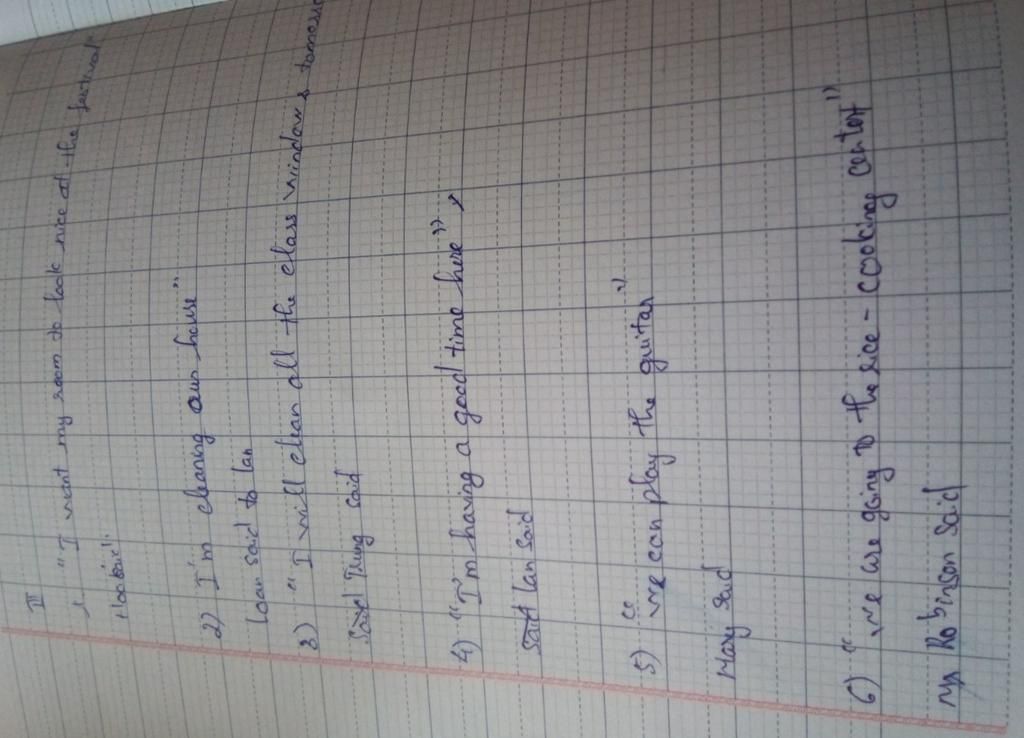 II
1. "I want my room to look nice at the festival"
Hoa said.
2) I'm cleaning our house"
Loan said to Lan
3) "I will clean all the class windows tomorrow
Trung said
4) "I'm having a good time here",
Lan said
5) "we can play the guitar"
Mary said
6) "we are going to the rice-cooking contest"
Robinson said